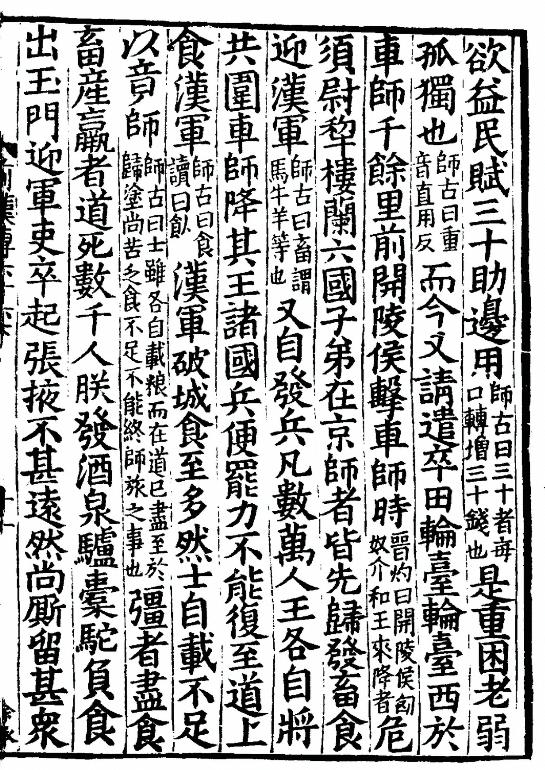 欲益民賦三十助邊用師古曰三十者每口轉增三十錢也是重困老弱
孤獨也師古曰重音直用反而今又請遣卒田輪臺輪臺西於
車師千餘里前開陵侯擊車師時晉灼曰開陵侯匈奴介和王來降者危
須尉犂樓蘭六國子弟在京師者皆先歸發畜食
迎漢軍師古曰畜謂馬牛羊等也又自發兵凡數萬人王各自將
共圍車師降其王諸國兵便罷力不能復至道上
食漢軍師古曰食讀曰飤漢軍破城食至多然士自載不足
以竟師師古曰士雖各自載粮而在道已盡至於歸塗尚苦乏食不足不能終師旅之事也彊者盡食
畜產羸者道死數千人朕發酒泉驢橐駝負食
出玉門迎軍吏卒起張掖不甚遠然尚廝留甚衆